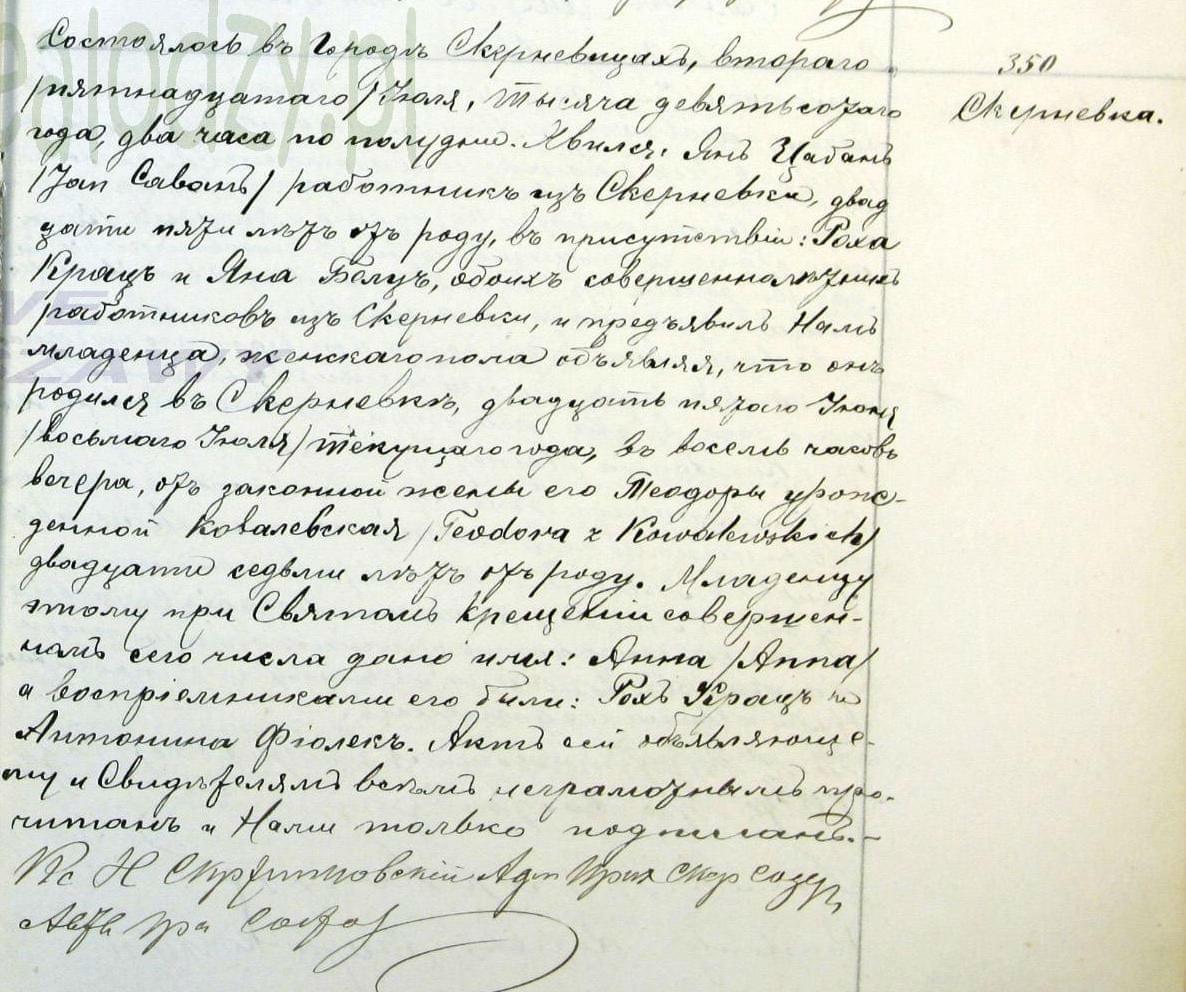 Состоялось въ Городѣ Скерневицахъ, втораго
350
/пятнадцатаго/ Іюля, тысяча девятьсотаго
Скерневка.
года, два часа по полудни. Явился: Янъ Цабанъ
/Jan Caban/ работникъ изъ Скерневки, двад
цати пяти лѣтъ отъ роду, въ присутствіи: Роха
Крацъ и Яна Белцъ, обоихъ совершеннолѣтнихъ
работниковъ изъ Скерневки, и предъявилъ Намъ
младенца, женскаго пола объявляя, что онъ
родился въ Скерневкѣ, двадцать пятаго Іюня
/восьмаго Іюля/ текущаго года, въ восемь часовъ
вечера, отъ законной жены его Теодоры урож-
денной Ковалевская /Teodora z Kowalewskich/
двадцати седьми лѣтъ отъ роду. Младенцу
этому при Святомъ Крещеніи совершен-
номъ сего числа дано имя: Анна /Anna/
а воспріемниками его были: Рохъ Крацъ и
Антонина Фіолекъ. Актъ сей объявляюще-
му и Свидѣтелямъ всѣмъ неграмотнымъ про-
читанъ и Нами только подписанъ.-
Кс Н Адм Прих Скер